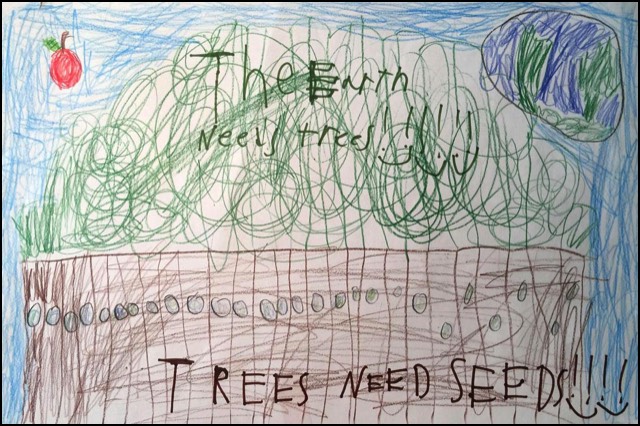 The Earth
Needs trees!!!!!!
TREES NEED SEEDS!!!!